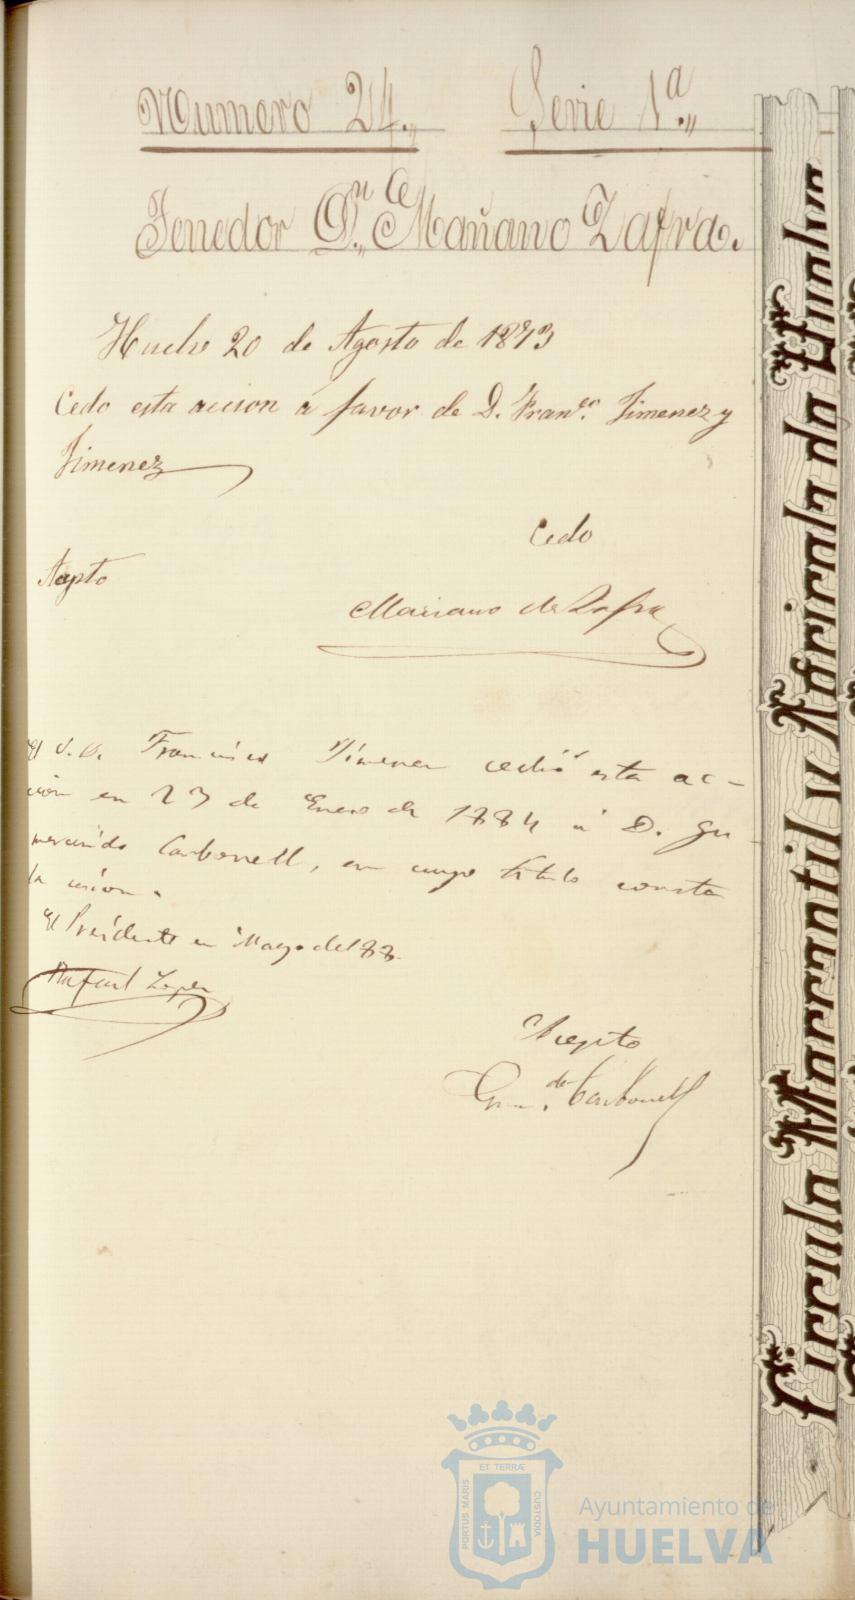 Numero 24.,, Serie 1ª.,,
Tenedor Dn. Mariano Zafra.
Huelva 20 de Agosto de 1893
Cedo esta accion a favor de D. Franco. Jimenez y
Jimenez
Cedo
Acepto
Mariano de Zafra
El S. D. Francisco Jimenez cedió esta ac-
ción en 23 de Enero de 1884 a D. Gu-
mersindo Carbonell, en cuyo titulo consta
la cesion.
El Presidente en Mayo de 188
Rafael Lopez
Acepto
Gumdo. Carbonell
Circulo Mercantil y Agricola de Huelva
PORTUS MARIS ET TERRÆ CUSTODIA
Ayuntamiento de
HUELVA